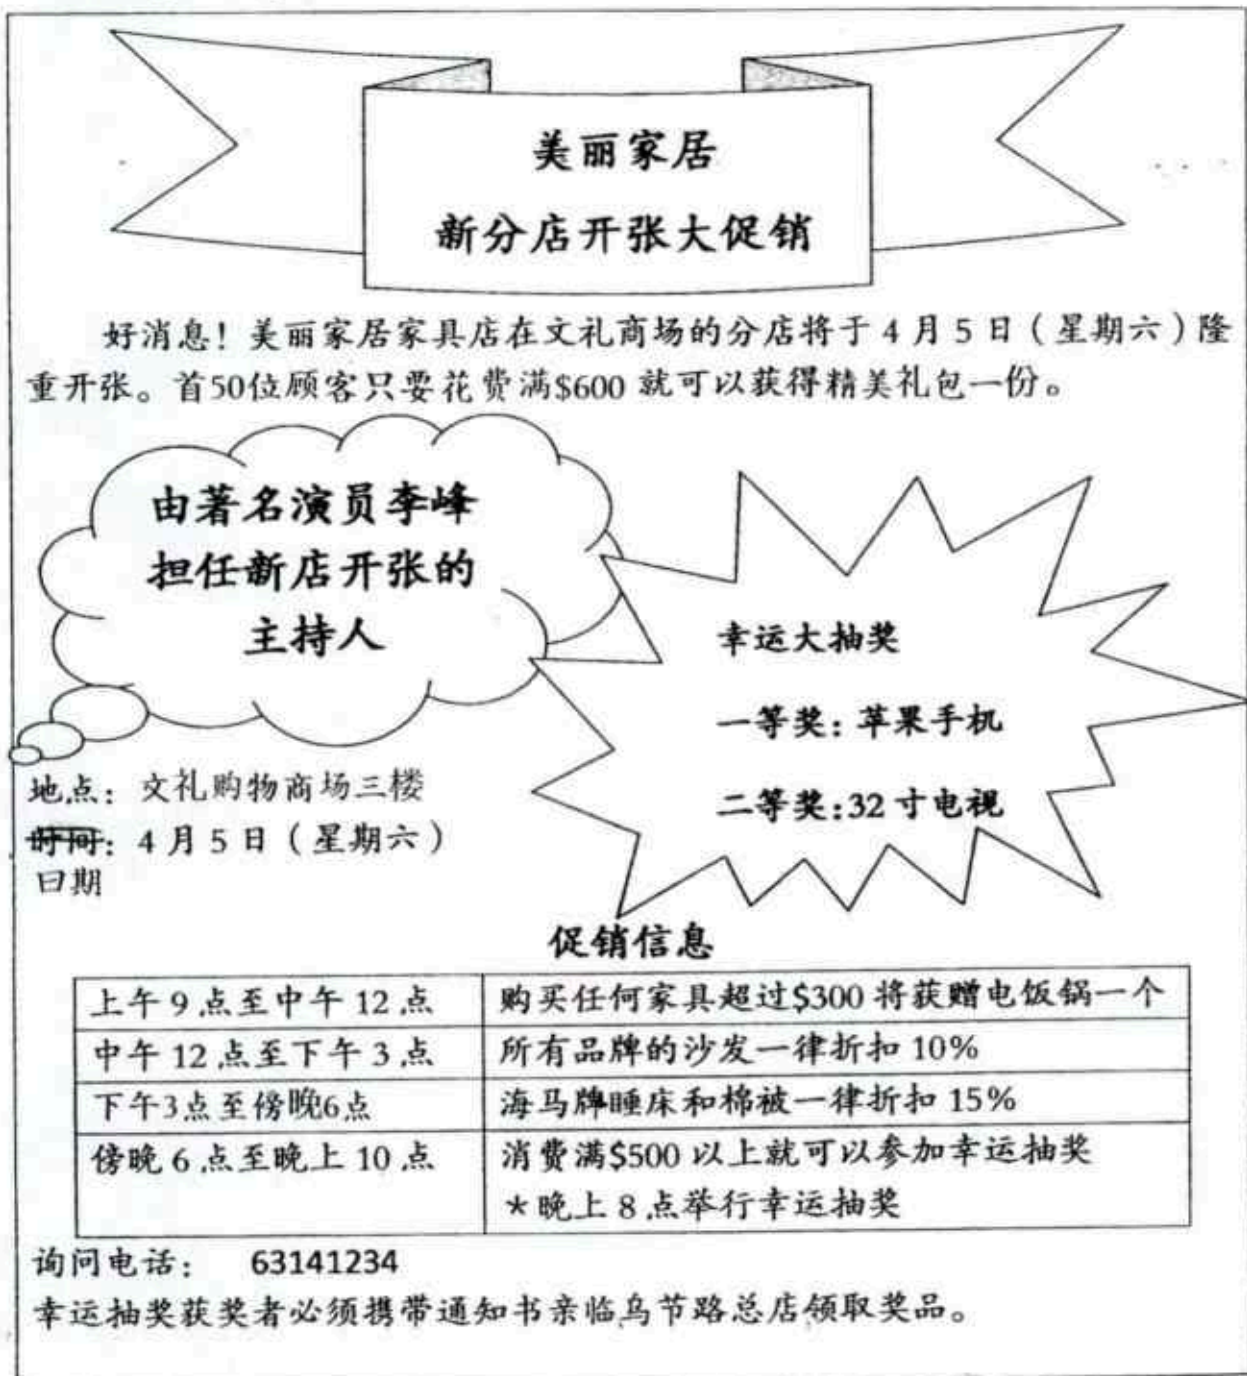 美丽家居
新分店开张大促销
好消息！美丽家居家具店在文礼商场的分店将于 4 月 5 日（星期六）隆
重开张。首50位顾客只要花费满$600 就可以获得精美礼包一份。
由著名演员李峰
担任新店开张的
主持人
幸运大抽奖
一等奖：苹果手机
二等奖：32 寸电视
地点：文礼购物商场三楼
时间：4 月 5 日（星期六）
日期
促销信息
上午 9 点至中午 12 点 购买任何家具超过$300 将获赠电饭锅一个
中午 12 点至下午 3 点 所有品牌的沙发一律折扣 10%
下午3点至傍晚6点 海马牌睡床和棉被一律折扣 15%
傍晚 6 点至晚上 10 点 消费满$500 以上就可以参加幸运抽奖
*晚上 8 点举行幸运抽奖
询问电话： 63141234
幸运抽奖获奖者必须携带通知书亲临乌节路总店领取奖品。